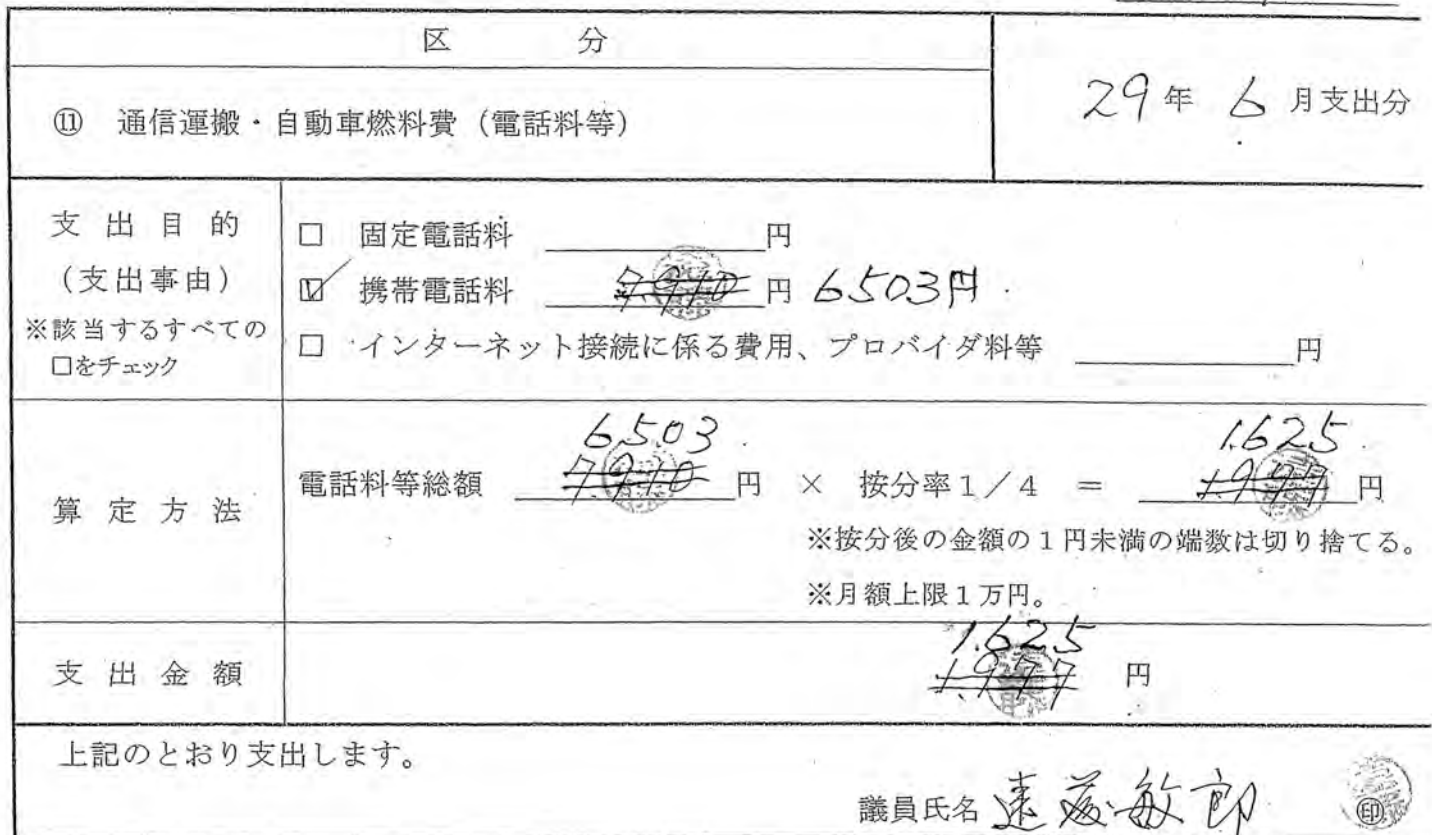 区 分
29年 6月支出分
⑪ 通信運搬・自動車燃料費（電話料等）
支出目的
（支出事由）
※該当するすべての
□をチェック
□ 固定電話料 円
☑ 携帯電話料 7,910 円 6503円
□ インターネット接続に係る費用、プロバイダ料等 円
算定方法
6,503 1,625
電話料等総額 7,910 円 × 按分率1／4 ＝ 1,977 円
※按分後の金額の1円未満の端数は切り捨てる。
※月額上限1万円。
支出金額
1,625
1,977 円
上記のとおり支出します。
議員氏名 遠藤敏郎 ㊞